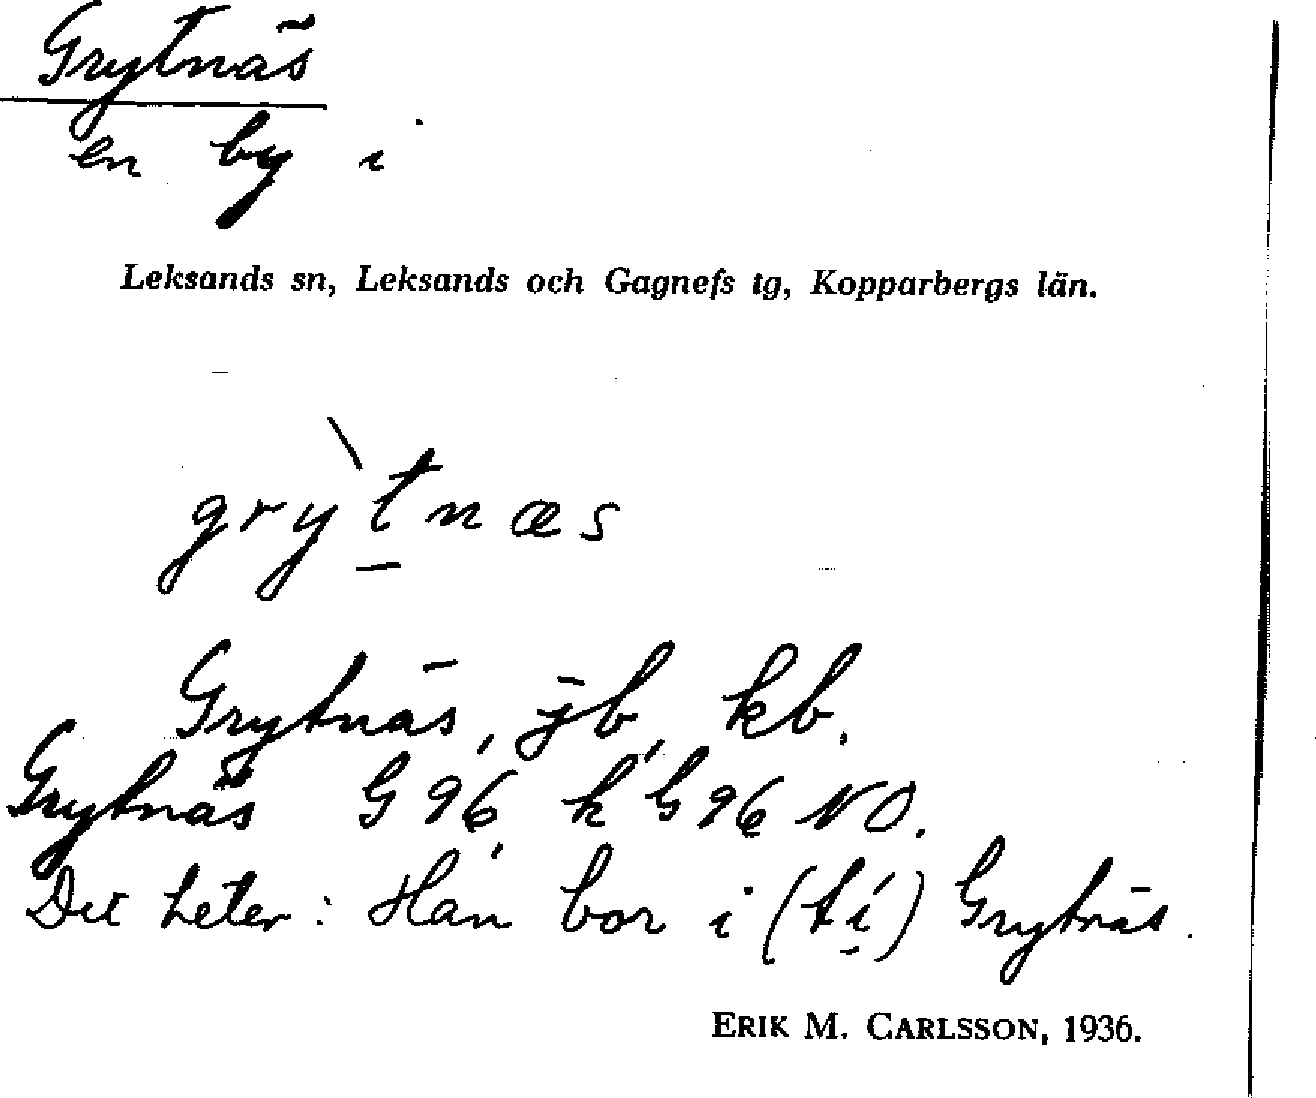 Grytnäs
en by i
Leksands sn, Leksands och Gagnefs tg, Kopparbergs län.
grỳtnæs
Grytnäs, jb, kb.
Grytnäs G 96, k G 96 NO.
Det heter: Han bor i (tí) Grytnäs.
ERIK M. CARLSSON, 1936.